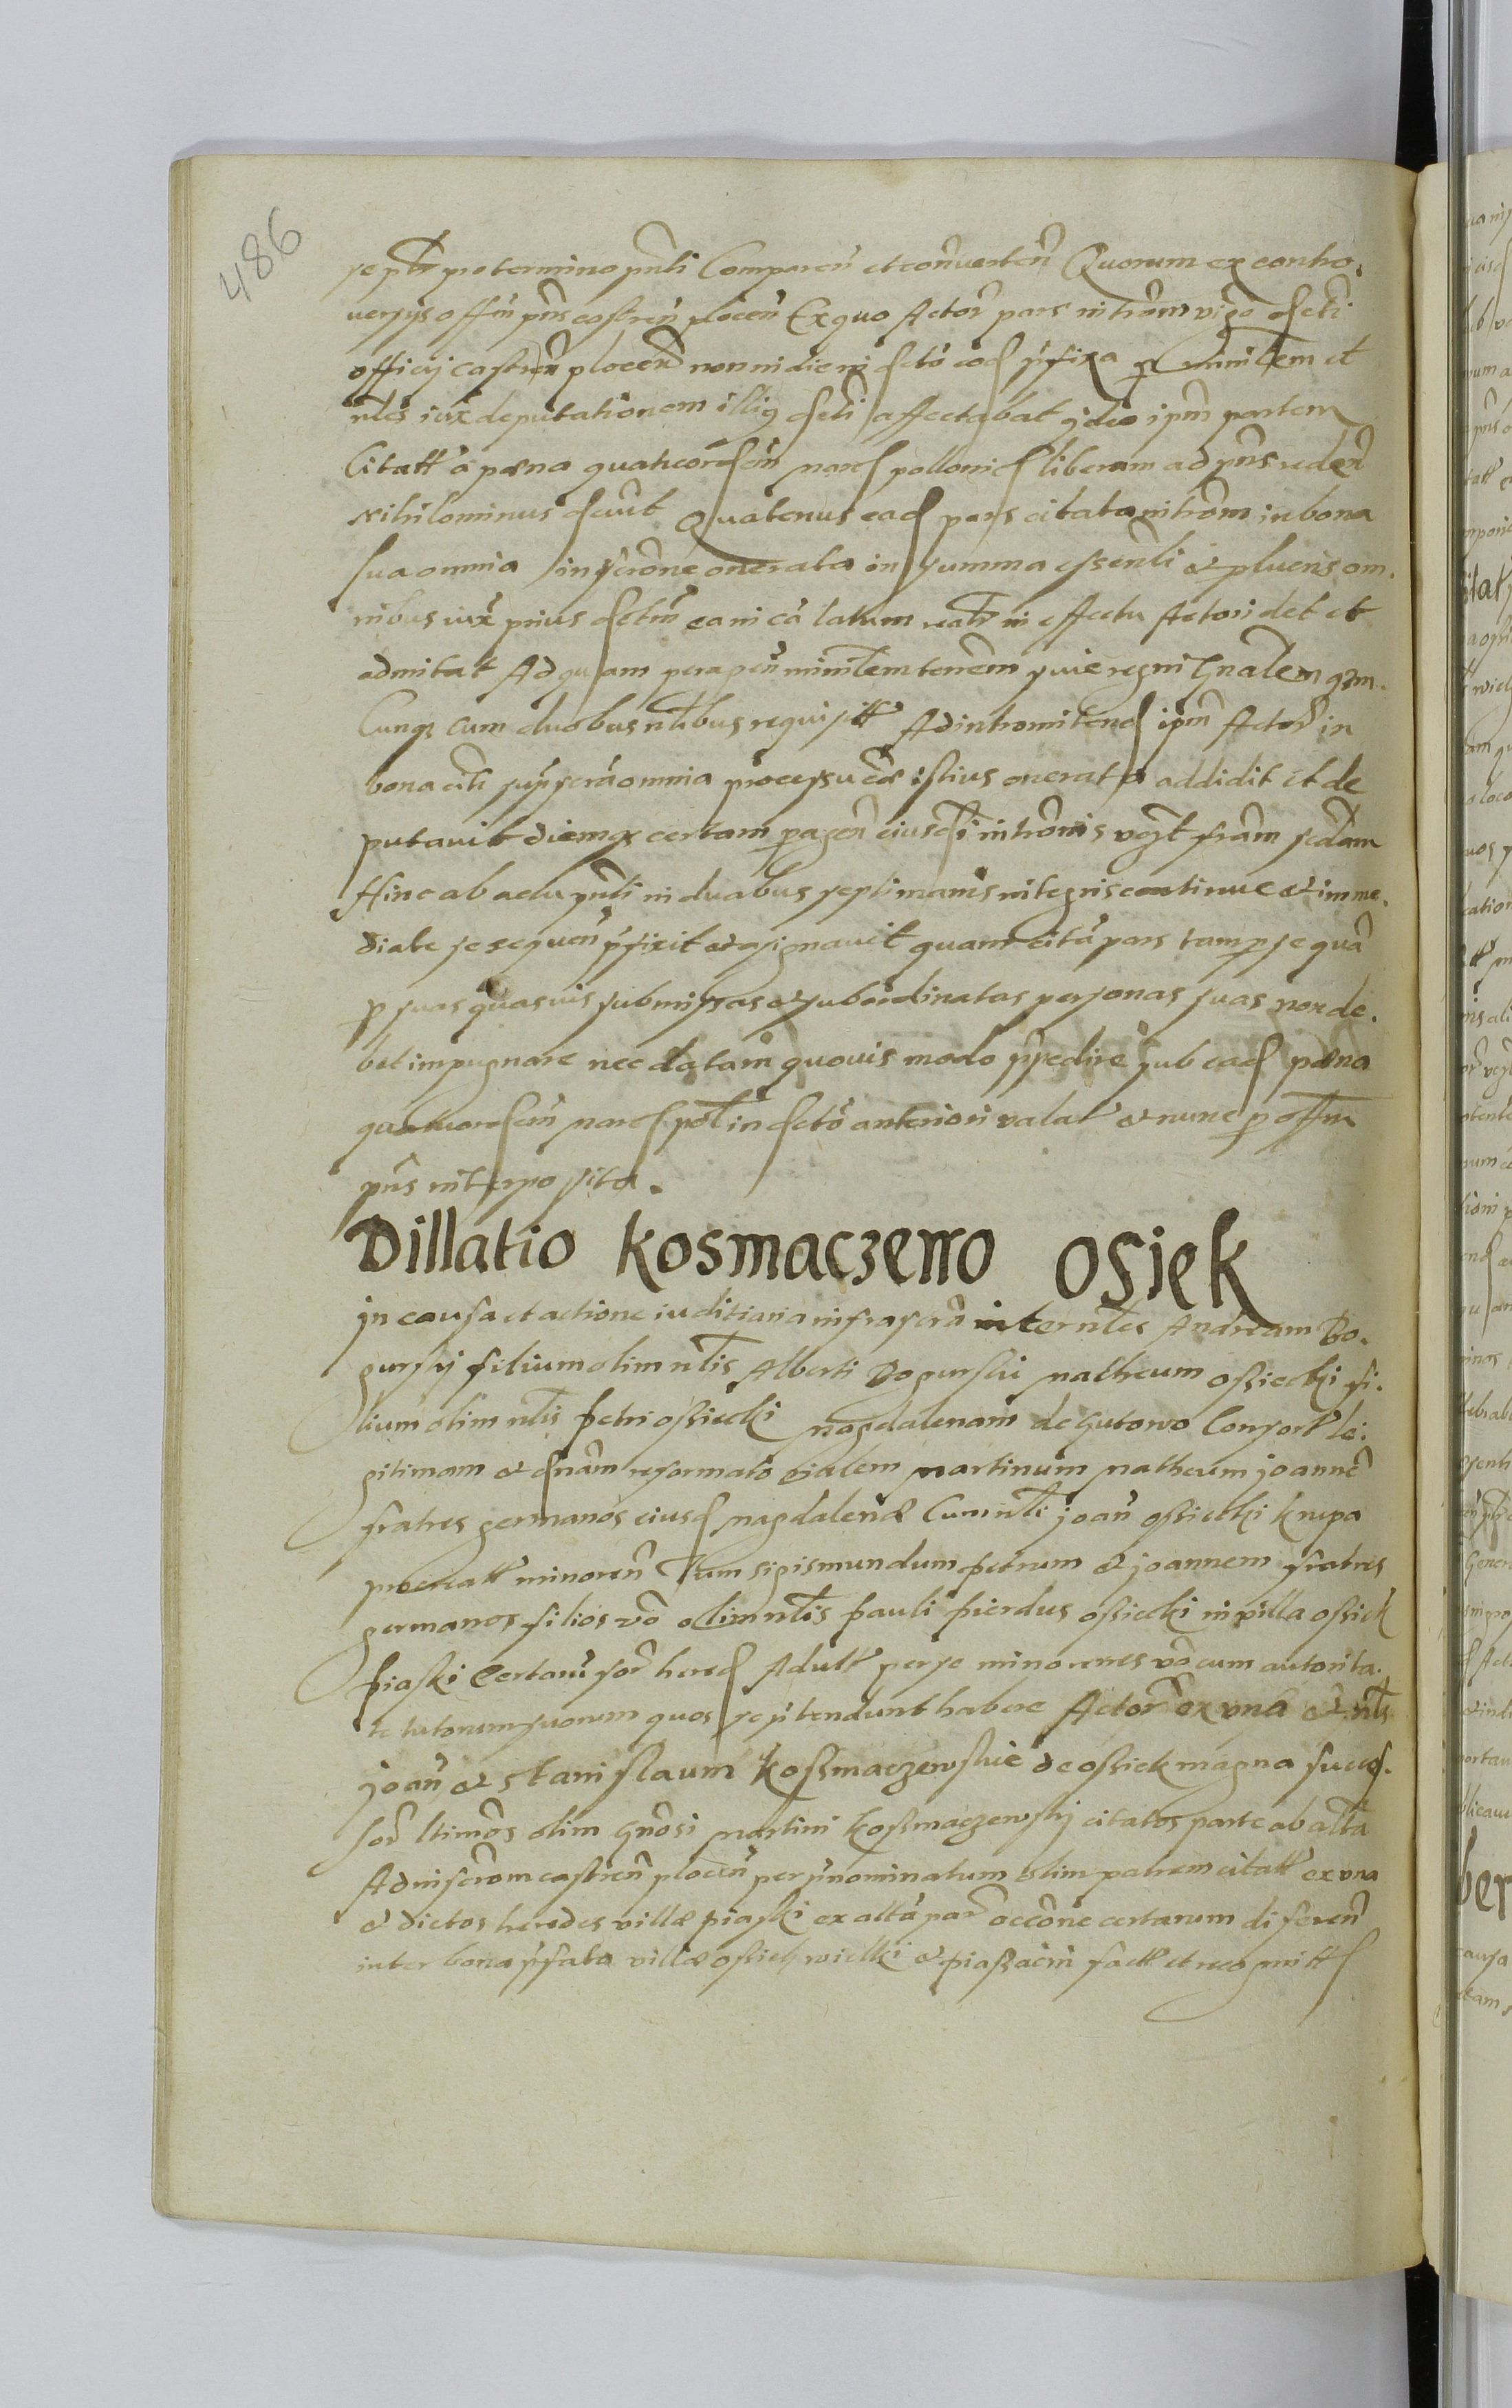 486
se pro termino pñti Compareñ et conuerteñ Quorum ex contro.
uersys offm pñs castreñ ploceñ Ex quo Actor pars intrōm vigo
officij castreñ ploceñ non in die in dcto eod pfixa p minirlem et
nles iux deputationem illig dcti affectabat jdeo ipm partem
Citatt a pæna quatuordcim marc polloniq liberam ad pñs redeñ
Nihilominus dcuit Quatenus ead pars citata intrōm in bona
sua omnia inscrōne onerata in summa essenli & pluens om.
nibus iux prius dctm ea in ca latum realr in effectu Actori det et
admitat Ad quam peragen minirlem terrem siue regni Gnalem qm.
Cunq cum duobus nlibus requisitt Ad intromitend ipm Actor in
bona citti supscra omnia processu istius onerata addidit et de
putauit diemq certam p agen eiusdi intrōmis vegt fram sedam
Hinc ab actu pnti in duabus septimanis integris continue & imme.
diate se sequen pfixit & asignauit quam cita pars tam p se qua
p suas quasuis submissas & subordinatas personas suas non de.
bet impugnare nec datam quouis modo ipedire sub ead pæna
quatuordcim marc pol in dcto anteriori valat & nunc p offm
pñs interposita.
Dillatio Kosmaczewo Osiek
jn causa et actione iuditiaria infrascra inter nles Andream Bo.
gurskij filium olim nlis Alberti Bogurskij Matheum ossiecki fi.
lium olim nlis petri ossiecki Magdalenam de Gutowo Consort le:
gitimam & reformato Martinum Matheum joannē
fratres germanos eiusd Magdalenæ Cum nli joan ossiecki krupa
procreatt minoren Tum sigismundum petrum & joannem fratres
germanos filios vō olim nlis pauli pierdus ossiecki in villa ossiek
piaski Certarū sor hered Adult per se minorenes vō cum autorita.
te tutorum suorum quos se ptendunt habere Actor ex vna & nls
joan & stanislaum Kossmaczewskie de ossiek magna succes.
sor ltimos olim Gnosi Martini Kossmaczewskij citatos parte ab alta
Ad inscrom castren plocen per pnominatum olim patrem citatt ex vna
& dictos heredes villæ piaski ex alta par occone certarum diferen
inter bona pfata villæ ossiek wielki & piassacin fact et recognitt